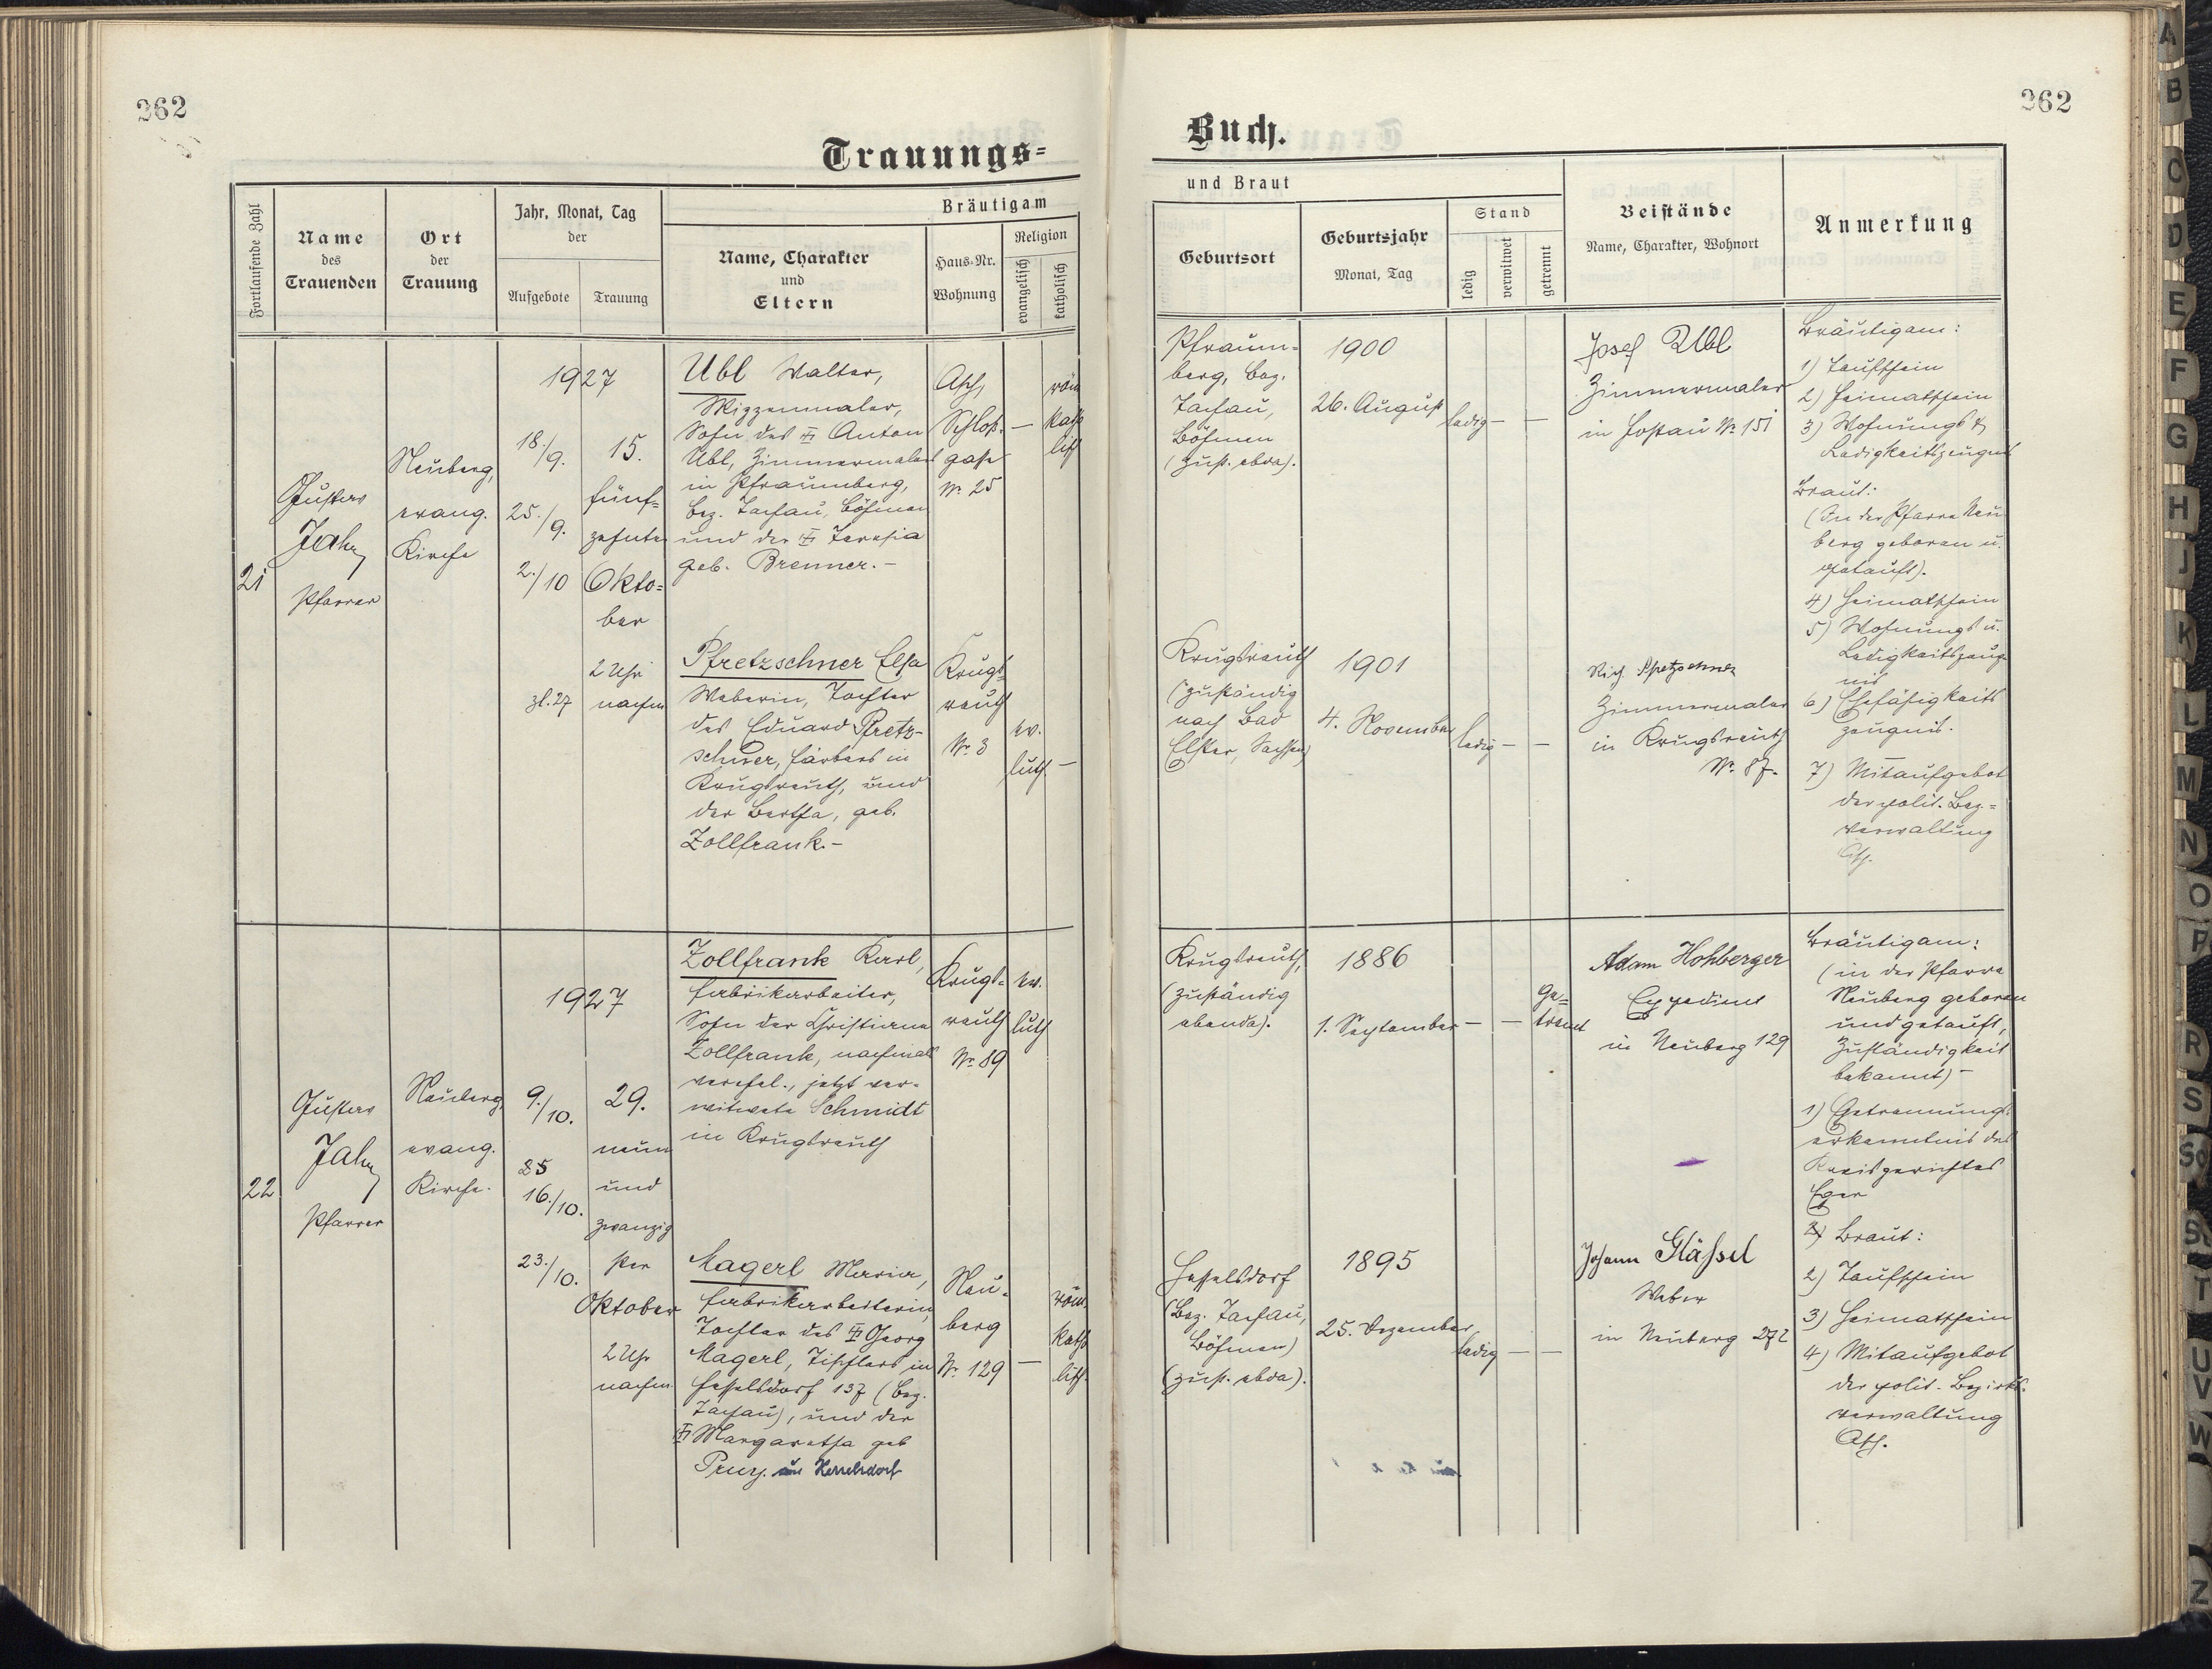 262
262
Trauungs=
Buch.
Fortlaufende Zahl
Name
des
Trauenden
Ort
der
Trauung
Jahr, Monat, Tag
der
Aufgebote
Trauung
Bräutigam
und Braut
Name, Charakter
und
Eltern
Haus-Nr.
Wohnung
Religion
evangelisch
katholisch
Geburtsort
Geburtsjahr
Monat, Tag
Stand
ledig
verwitwet
getrennt
Beistände
Name, Charakter, Wohnort
Anmerkung
21
Gustav
Jahn
Pfarrer
Neuberg,
evang.
Kirche
1927
18./9.
25./9.
2./10
zl. 27
15.
fünf-
zehnter
Okto=
ber
2 Uhr
nachm
Ubl Walter,
Sohn des Anton
Ubl, Zimmermalers
in Pfraumberg,
Bez. Tachau, Böhmen
und der Theresia
geb. Brenner.-
Asch,
Schloß-
gasse
Nr. 25
—
röm
kath
lisch
Pfraum-
berg, Bez.
Tachau,
Böhmen
(zust. ebda).
1900
26. August
ledig — —
Josef Ubl
Zimmermaler
in Nr. 151
Bräutigam:
1) Taufschein
2) Heimatschein
3) Wohnungs &
Ledigkeitszeugnis
Braut:
(In der Pfarre Neu
berg geboren u.
getauft).
4) Heimatschein
5) Wohnungs u.
Ledigkeitszeug
nis
6) Ehefähigkeits
zeugnis.
7) Mitaufgebot
der polit. Bez.=
verwaltung
Asch.
Pfretzschner Elsa
Weberin, Tochter
des Eduard Pfretz-
schner, Färbers in
Krugsreuth, und
der Bertha, geb.
Zollfrank.-
Krugs-
reuth
Nr. 3
ev.
luth. —
Krugsreuth
(zuständig
nach Bad
Elster, Sachsen)
1901
4. November
ledig — —
Rich. Pfretzschner
Zimmermaler
in Krugsreuth
Nr. 87.
22
Gustav
Jahn
Pfarrer
Neuberg,
evang.
Kirche.
1927
9./10.
25
16./10.
23./10.
29.
neun
und
zwanzig
ster
Oktober
2 Uhr
nachm.
Zollfrank Karl,
Fabrikarbeiter,
Sohn der Christiana
Zollfrank, nachmals
verehel., jetzt ver-
witwete Schmidt
in Krugsreuth
Krugs-
reuth
Nr. 89
ev.
luth
Krugsreuth,
(zuständig
ebenda).
1886
1. September
— —
Ge=
trennt
Adam Hohberger
Expedient
in Neuberg 129
Bräutigam:
(in der Pfarre
Neuberg geboren
und getauft,
Zuständigkeit
bekannt) -
1) Getrennungs-
erkenntnis des
Kreisgerichtes
Eger
Braut:
2) Taufschein
3) Heimatschein
4) Mitaufgebot
der polit. Bezirks-
verwaltung
Asch.
Magerl Maria,
Fabrikarbeiterin,
Tochter des Georg
Magerl, Tischlers in
Hesselsdorf 137 (Bez.
Tachau), und der
Margaretha geb
aus Hesselsdorf
Neu-
berg
Nr. 129
—
röm.
kath
lisch.
Hesselsdorf
(Bez. Tachau,
Böhmen)
(zust. ebda).
1895
25. Dezember
ledig — —
Johann Gläßel
Weber
in Neuberg 272
A
B
C
D
E
F
G
H
J
K
L
M
N
O
P
R
S
T
U
V
W
Z